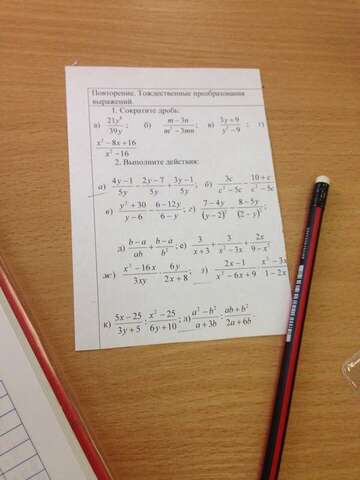 Повторение. Тождественные преобразования
выражений.
1. Сократите дробь:
а) 21y⁶/39y ; б) (m − 3n)/(m² − 3mn) ; в) (3y + 9)/(y² − 9) ; г)
(x² − 8x + 16)/(x² − 16)
2. Выполните действия:
а) (4y − 1)/5y − (2y − 7)/5y + (3y − 1)/5y ; б) 3c/(c² − 5c) − (10 + c)/(c² − 5c)
в) (y² + 30)/(y − 6) + (6 − 12y)/(6 − y) ; г) (7 − 4y)/(y − 2)² − (8 − 5y)/(2 − y)² ;
д) (b − a)/ab + (b − a)/b² ; е) 3/(x + 3) + 3/(x² − 3x) + 2x/(9 − x²)
ж) (x² − 16x)/3xy · 6y/(2x + 8) ; з) (2x − 1)/(x² − 6x + 9) · (x² − 3x)/(1 − 2x)
к) (5x − 25)/(3y + 5) : (x² − 25)/(6y + 10) ; л) (a² − b²)/(a + 3b) : (ab + b²)/(2a + 6b) .